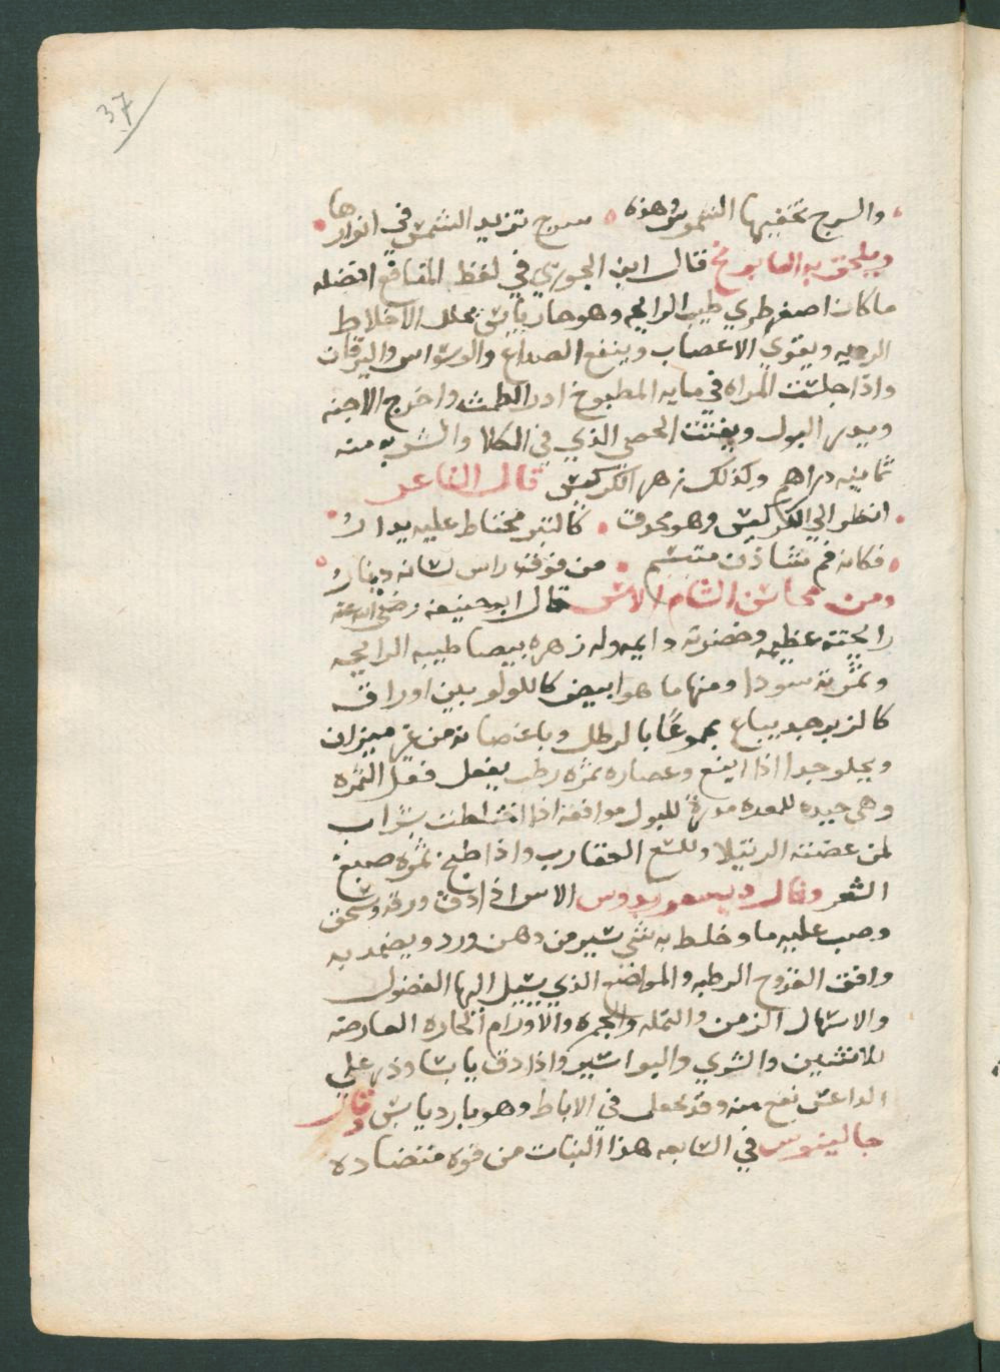 37
والسرج تخفيها الشموس وهذه • سرج تزيد الشمس في انوارها •
ويلحق به البابونج قال ابن الجوزي في لفظ المنافع افضله
ماكان اصفر طري طيب الرايحه وهو حار يابس محلل الاخلاط
الرديه ويقوي الاعصاب وينفع الصداع والوسواس واليرقان
واذا جلست المراه في مايه المطبوخ ادر الطمث واخرج الاجنه
ويدر البول ويفتت الحصى الذي في الكلا والشربه منه
ثمانيه دراهم وكذلك زهر الكركيش قال الشاعر
• انظر الي الكركيش وهو محدق • كالتبر مختاط عليه يدار •
• فكانه فم شاذن متبسم • من فوقه راس لسانه دينار •
ومن محاسن الشام الاس قال ابو حنيفه رضي الله عنه
رايحته عظيمه وخضرته دايمه وله زهره بيضا طيبه الرايحه
وثمرته سودا ومنها ما هو ابيض كاللولو بين اوراق
كالزبرجد يباع مجموعًا بالرطل وباغصانه من غير ميزان
ويحلو جدا اذا اينع وعصاره ثمره رطب يفعل فعل الثمره
وهي جيده للمعده مدرة للبول موافقه اذا اختلطت بشراب
لمن عضته الرتيلا وللسع العقارب واذا طبخ ثمره صبغ
الشعر وقال ديسقوريدوس الاس اذا دق ورقه وسحق
وصب عليه ما وخلط به شي يسير من دهن ورد ويضمد به
وافق القروح الرطبه والمواضع الذي يسيل اليها الفضول
والاسهال الزمن والنمله والجمره والاورام الحاره العارضه
للانثيين والشوي والبواسير واذا دق يابسا وذر علي
الداعش نفع منه وقد يجعل في الاباط وهو بارد يابس وقال
جالينوس في السابعه هذا النبات من قوه متضاده